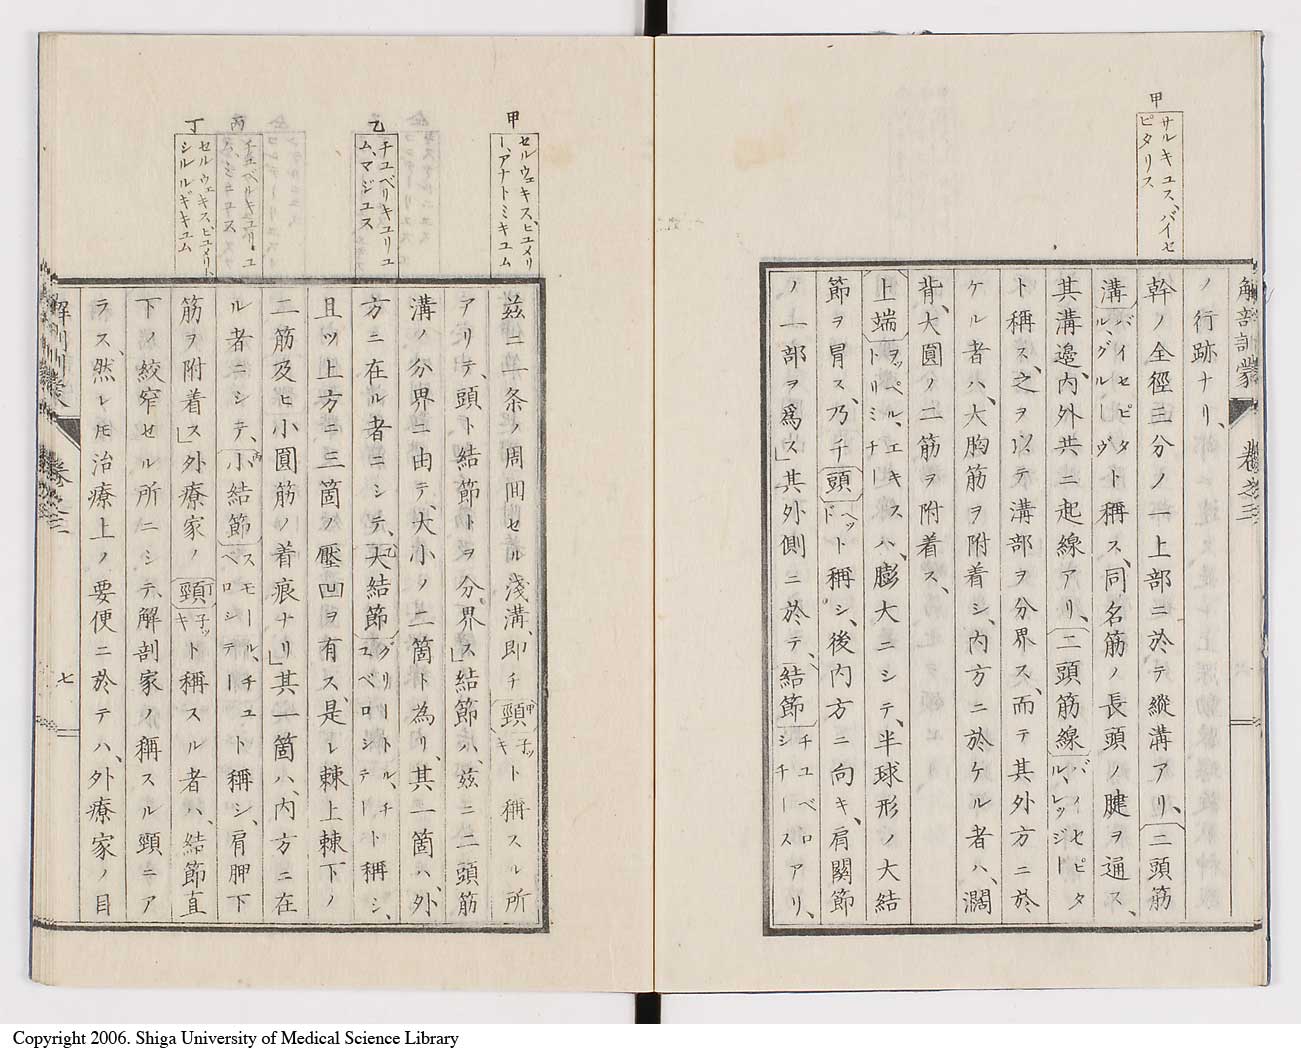 甲
サルキユス、バイセ
ピタリス
解剖訓蒙 卷之三
ノ行跡ナリ、
幹ノ全徑三分ノ二上部ニ於テ縱溝アリ、二頭筋
溝バイセピタル、グルーヴト稱ス、同名筋ノ長頭ノ腱ヲ通ス、
其溝邉、内外共ニ起線アリ、二頭筋線バイセピタル、レッジー
ト稱ス、之ヲ以テ溝部ヲ分界ス、而テ其外方ニ於
ケル者ハ、大胸筋ヲ附着シ、内方ニ於ケル者ハ、濶
背、大圓ノ二筋ヲ附着ス、
上端ヲッペル、エキストリミチーハ、膨大ニシテ、半球形ノ大結
節ヲ冐ス、乃チ頭ヘットド稱シ、後内方ニ向キ、肩関節
ノ一部ヲ爲ス」其外側ニ於テ、結節チユベロシチースアリ、
甲
セルウェキス、ヒユメリ
ー、アナトミキユム
乙
チユベリキユリユ
ム、マジユス
丙
チユベルキユリーユ
ム、ミニユス
丁
セルウェキス、ヒユメリー、
シルルギキユム
茲ニ一条ノ周囬セル淺溝、即チ頸子ッキト稱スル所
アリテ、頭ト結節トヲ分界ス」結節ハ、茲ニ二頭筋
溝ノ分界ニ由テ、大小ノ二箇ト為リ、其一箇ハ、外
方ニ在ル者ニシテ、大結節グリートル、チユベロシテートト稱シ、
且ツ上方ニ三箇ノ壓凹ヲ有ス、是レ棘上棘下ノ
二筋及ヒ小圓筋ノ着痕ナリ」其一箇ハ、内方ニ在
ル者ニシテ、小結節スモール、チユベロシテートト稱シ、肩胛下
筋ヲ附着ス」外療家ノ頸子ッキト稱スル者ハ、結節直
下ノ絞窄セル所ニシテ、解剖家ノ稱スル頸ニア
ラス、然レ圧治療上ノ要便ニ於テハ、外療家ノ目
解剖訓蒙 卷之三 七
Copyright 2006. Shiga University of Medical Science Library